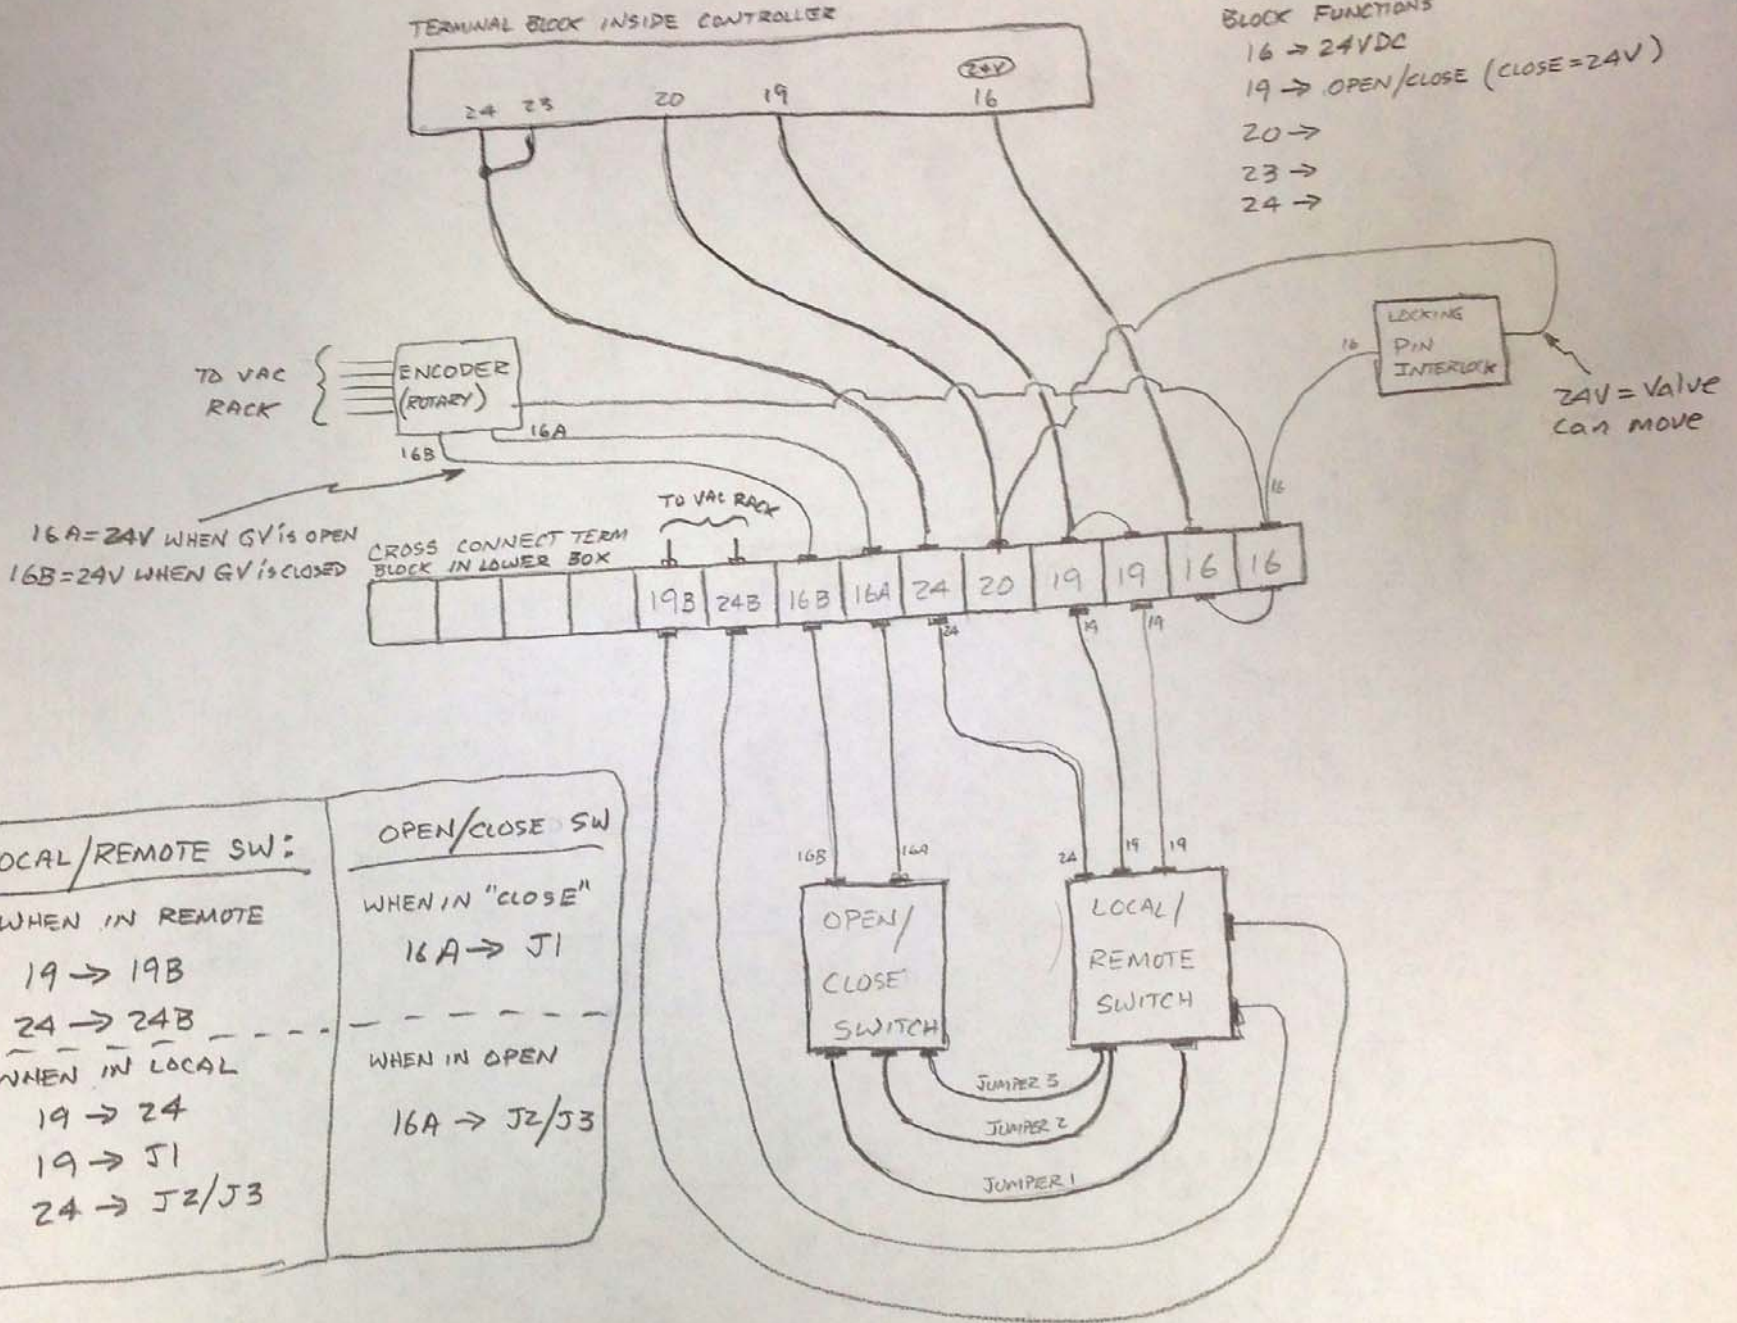 TERMINAL BLOCK INSIDE CONTROLLER
24V
24 23 20 19 16
BLOCK FUNCTIONS
16 → 24VDC
19 → OPEN/CLOSE (CLOSE=24V)
20 →
23 →
24 →
TO VAC
RACK
ENCODER
(ROTARY)
16A
16B
16
LOCKING
PIN
INTERLOCK
24V = Valve
can move
16
16A=24V WHEN GV is OPEN
16B=24V WHEN GV is CLOSED
TO VAC RACK
CROSS CONNECT TERM
BLOCK IN LOWER BOX
19B 24B 16B 16A 24 20 19 19 16 16
24 19 19
16B 16A 24 19 19
OPEN/
CLOSE
SWITCH
LOCAL/
REMOTE
SWITCH
JUMPER 3
JUMPER 2
JUMPER 1
OCAL/REMOTE SW:
WHEN IN REMOTE
19 → 19B
24 → 24B
WHEN IN LOCAL
19 → 24
19 → J1
24 → J2/J3
OPEN/CLOSE SW
WHEN IN "CLOSE"
16A → J1
WHEN IN OPEN
16A → J2/J3